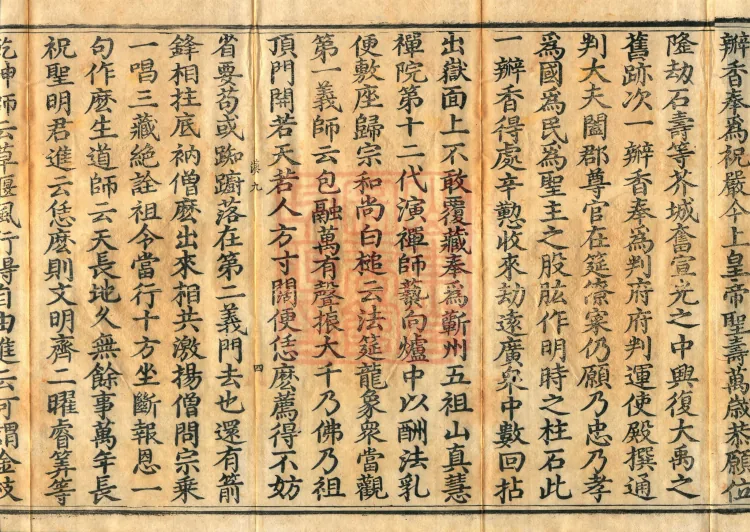 瓣香奉爲祝嚴今上皇帝聖壽萬歲恭願位
隆劫石壽等芥城奮宣光之中興復大禹之
舊跡次一瓣香奉爲判府府判運使殿撰通
判大夫闔郡尊官在筵僚寀仍願乃忠乃孝
爲國爲民爲聖主之股肱作明時之柱石此
一瓣香得處辛懃收來劫遠廣衆中數回拈
出嶽面上不敢覆藏奉爲蘄州五祖山真慧
禪院第十二代演禪師爇向爐中以酬法乳
便敷座歸宗和尚白槌云法筵龍象衆當觀
第一義師云包融萬有聲振大千乃佛乃祖
頂門開若天若人方寸闊便恁麼薦得不妨
滇九
四
省要苟或踟躕落在第二義門去也還有箭
鋒相拄底衲僧麼出來相共激揚僧問宗乘
一唱三藏絕詮祖令當行十方坐斷報恩一
句作麼生道師云天長地久無餘事萬年長
祝聖明君進云恁麼則文明齊二曜睿筭等
乾坤師云草偃風行得自由進云可謂金枝